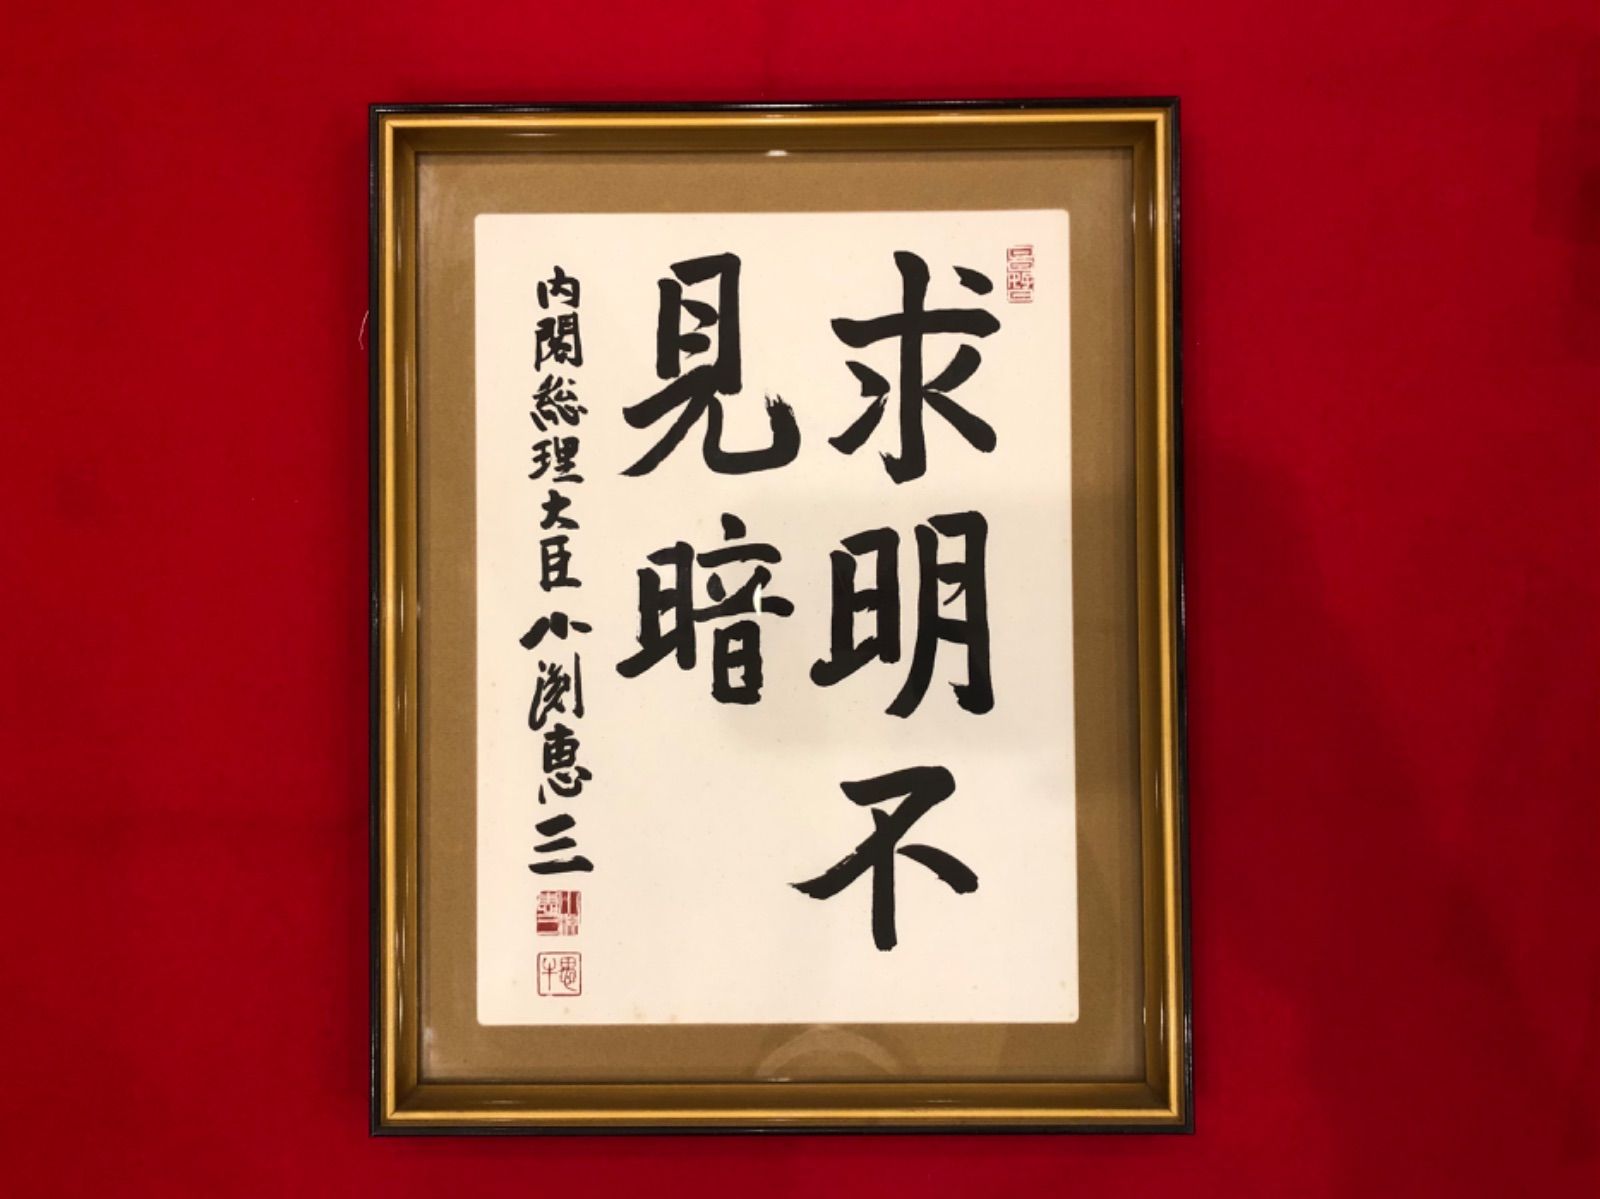 求明不
見暗
内閣総理大臣 小渕恵三